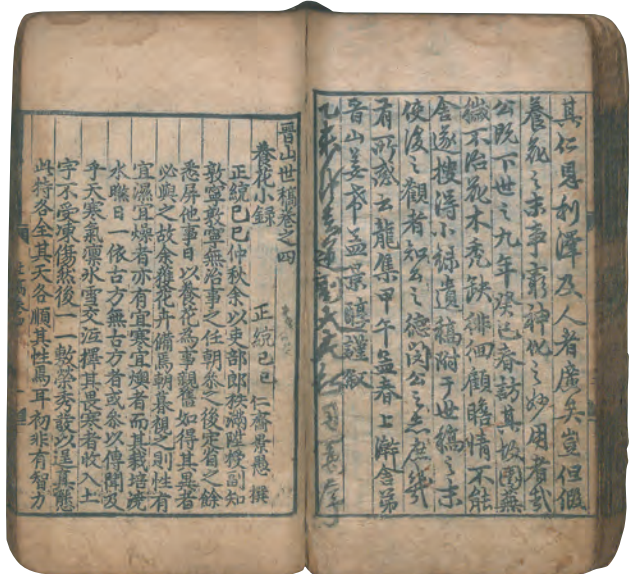 其仁恩利澤及人者廣矣豈但假
養花之末率窮神化之妙用者哉
公旣下世之九年癸巳春訪其故園蕪
穢不治花木禿缺徘徊顧瞻情不能
舍遂搜得小錄遺稿附于世稿之末
使後之觀者知公之德閔公之志庶幾
有所感云龍集甲午孟春上澣舍弟
晋山姜希孟景醇謹敍
晋山世稿卷之四
養花小錄
正統己巳 仁齋景愚 撰
正統己巳仲秋余以吏部郞秩滿陞授副知
敦寧敦寧無治事之任朝參之後定省之餘
悉屛他事日以養花爲事親舊如得其異者
必與之故余雜花卉備焉朝暮想之則性有
宜濕宜燥者亦有宜寒宜燠者而其栽培澆
水曬日一依古方無古方者或參以傳聞及
乎天寒氣凛氷雪交冱擇其畏寒者收入土
宇不受凍傷然後一一敷榮秀發以逞眞態
此特各全其天各順其性焉耳初非有智力